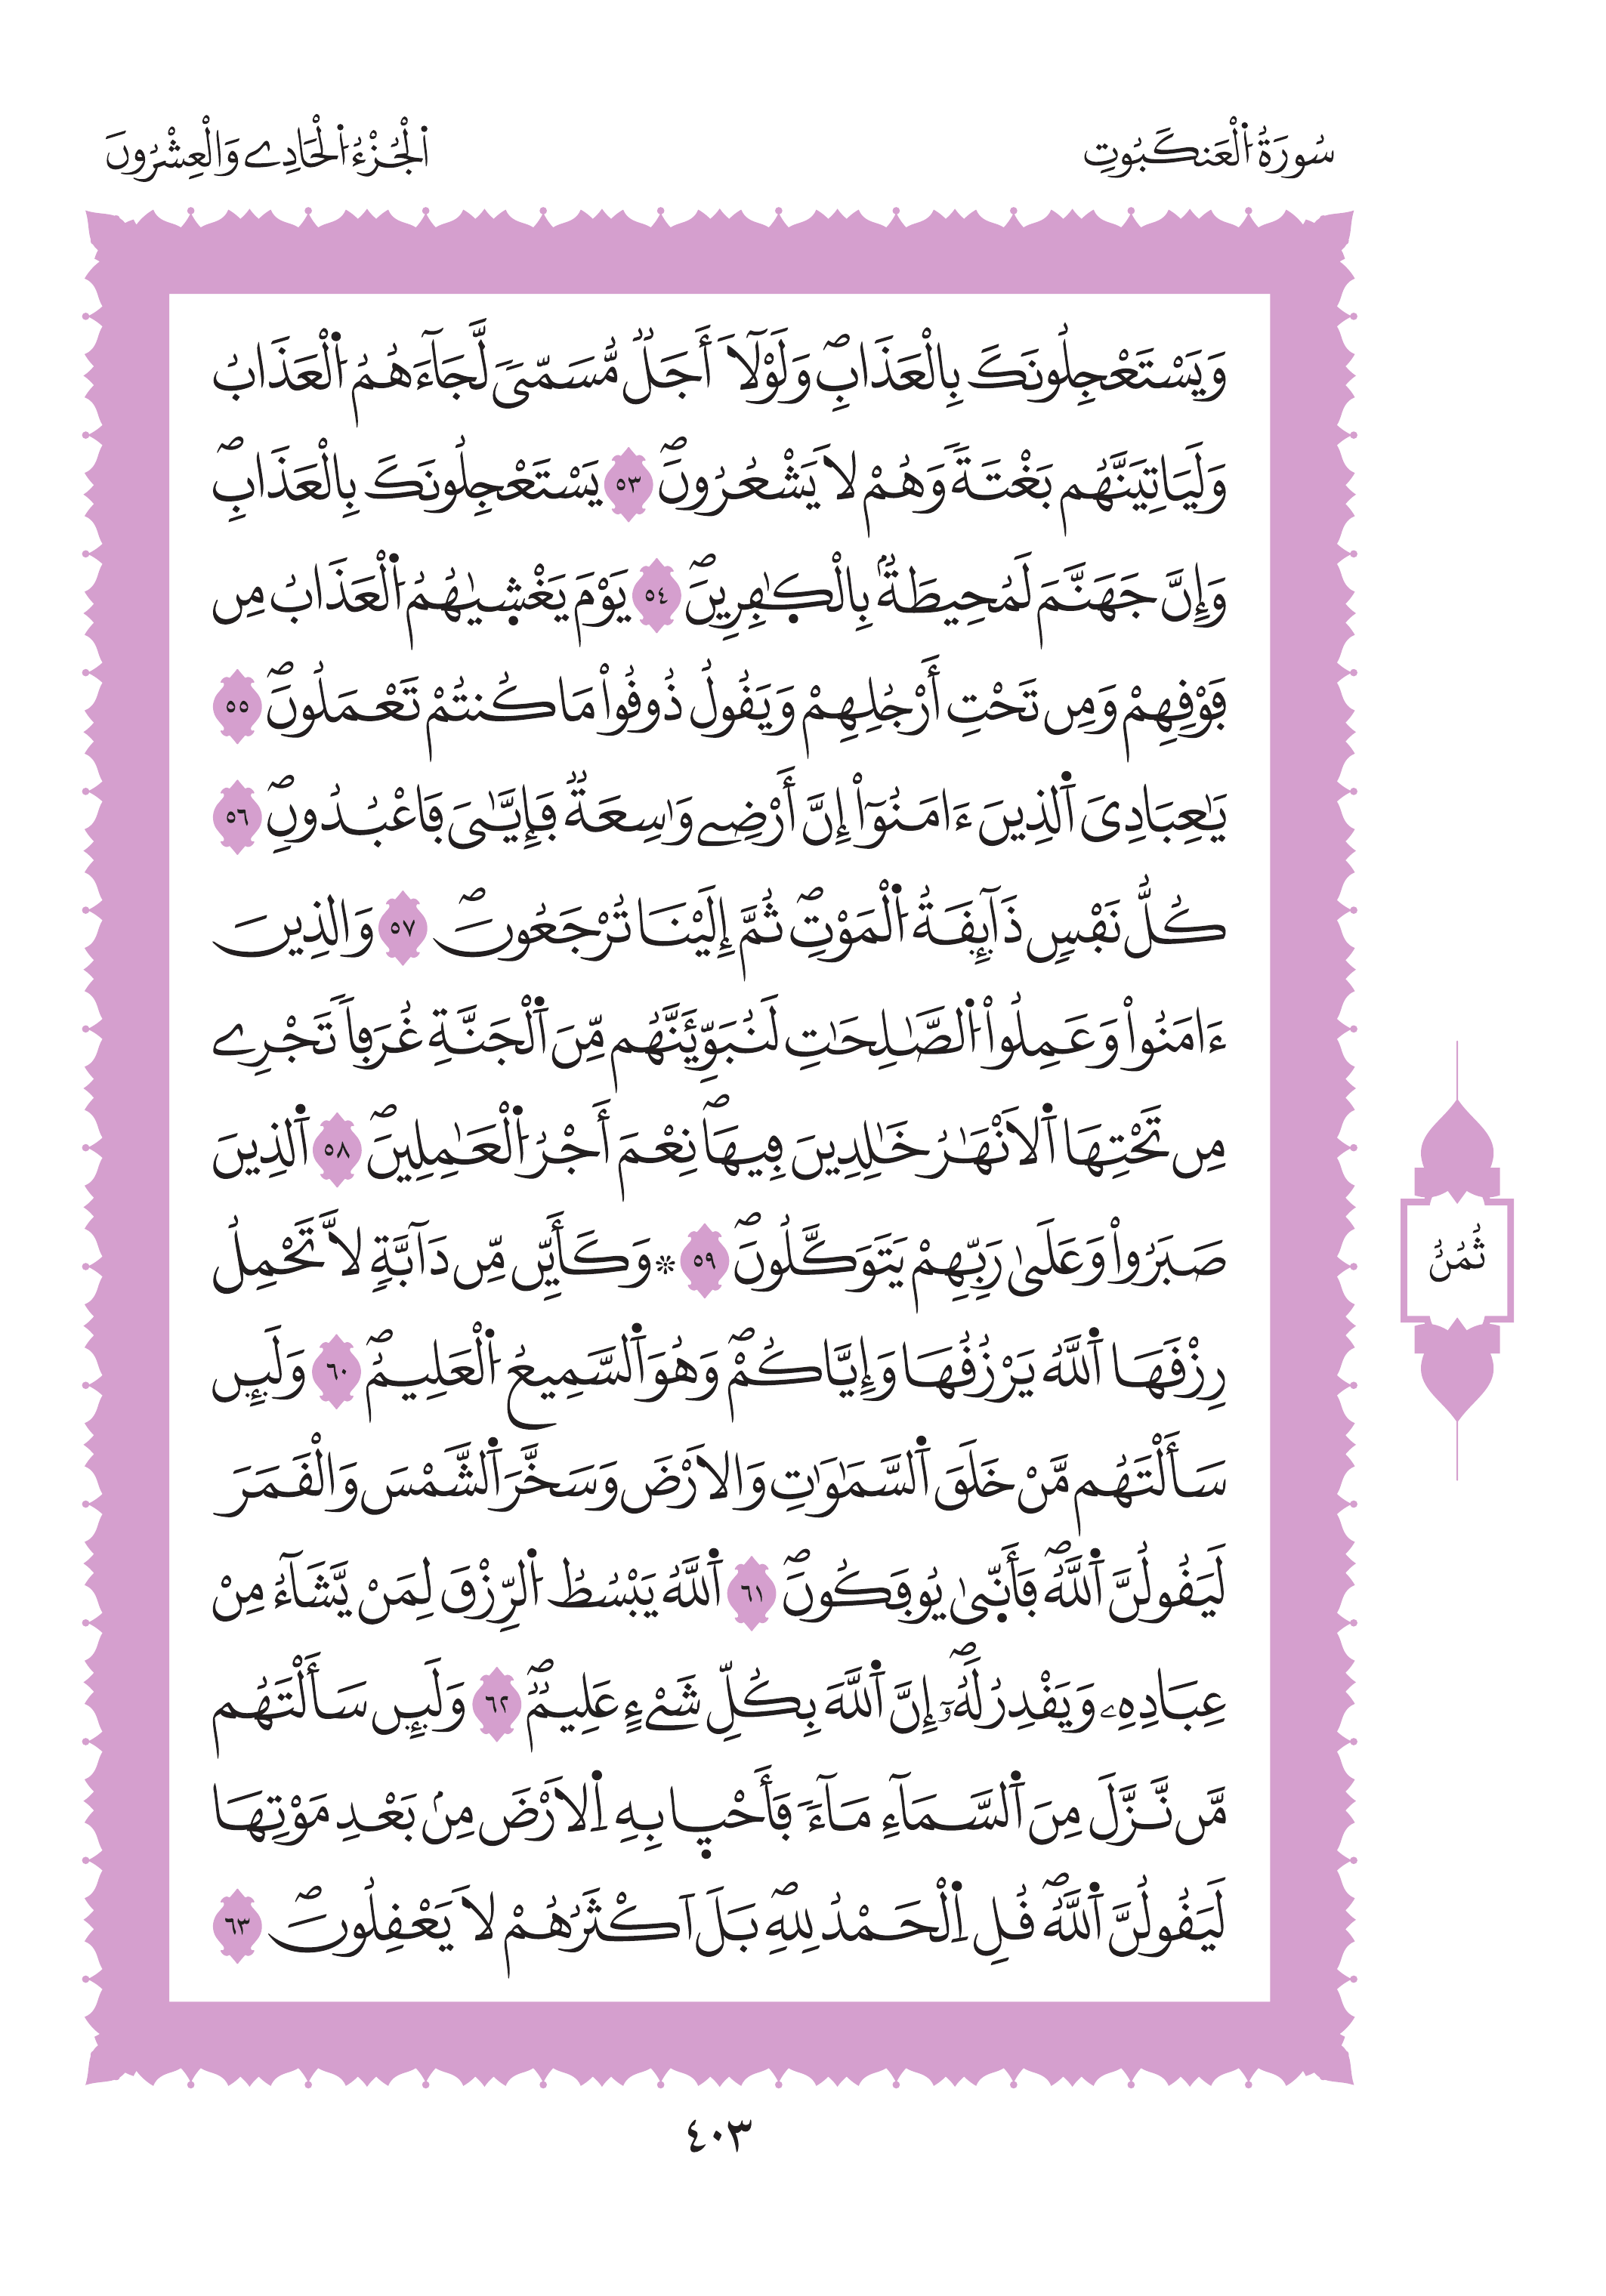 سُورَةُ اُ۬لْعَنكَبُوتِ
اَ۬لْجُزْءُ اُ۬لْحَادِے وَالْعِشْرُونَ
وَيَسْتَعْجِلُونَكَ بِالْعَذَابِۖ وَلَوْلَآ أَجَلٞ مُّسَمّيٗ لَّجَآءَهُمُ اُ۬لْعَذَابُ
وَلَيَاتِيَنَّهُم بَغْتَةٗ وَهُمْ لَا يَشْعُرُونَۖ ٥٣ يَسْتَعْجِلُونَكَ بِالْعَذَابِۖ
وَإِنَّ جَهَنَّمَ لَمُحِيطَةُۢ بِالْكٰ۪فِرِينَۖ ٥٤ يَوْمَ يَغْش۪يٰهُمُ اُ۬لْعَذَابُ مِن
فَوْقِهِمْ وَمِن تَحْتِ أَرْجُلِهِمْ وَيَقُولُ ذُوقُواْ مَا كُنتُمْ تَعْمَلُونَۖ ٥٥
يَٰعِبَادِيَ اَ۬لذِينَ ءَامَنُوٓاْ إِنَّ أَرْضِے وَٰسِعَةٞ فَإِيَّٰيَ فَاعْبُدُونِۖ ٥٦
كُلُّ نَفْسٖ ذَآئِقَةُ اُ۬لْمَوْتِۖ ثُمَّ إِلَيْنَا تُرْجَعُونَۖ ٥٧ وَالذِينَ
ءَامَنُواْ وَعَمِلُواْ اُ۬لصَّٰلِحَٰتِ لَنُبَوِّئَنَّهُم مِّنَ اَ۬لْجَنَّةِ غُرَفاٗ تَجْرِے
مِن تَحْتِهَا اَ۬لَانْهَٰرُ خَٰلِدِينَ فِيهَاۖ نِعْمَ أَجْرُ اُ۬لْعَٰمِلِينَۖ ٥٨ اَ۬لذِينَ
صَبَرُواْ وَعَلَيٰ رَبِّهِمْ يَتَوَكَّلُونَۖ ٥٩ ۞ وَكَأَيِّن مِّن دَآبَّةٖ لَّا تَحْمِلُ
رِزْقَهَا اَ۬للَّهُ يَرْزُقُهَا وَإِيَّاكُمْۖ وَهُوَ اَ۬لسَّمِيعُ اُ۬لْعَلِيمُۖ ٦٠ وَلَئِن
سَأَلْتَهُم مَّنْ خَلَقَ اَ۬لسَّمَٰوَٰتِ وَالَارْضَ وَسَخَّرَ اَ۬لشَّمْسَ وَالْقَمَرَ
لَيَقُولُنَّ اَ۬للَّهُۖ فَأَنّ۪يٰ يُوفَكُونَۖ ٦١ اَ۬للَّهُ يَبْسُطُ اُ۬لرِّزْقَ لِمَنْ يَّشَآءُ مِنْ
عِبَادِهِۦ وَيَقْدِرُ لَهُۥٓۖ إِنَّ اَ۬للَّهَ بِكُلِّ شَےْءٍ عَلِيمٞۖ ٦٢ وَلَئِن سَأَلْتَهُم
مَّن نَّزَّلَ مِنَ اَ۬لسَّمَآءِ مَآءٗ فَأَحْي۪ا بِهِ اِ۬لَارْضَ مِنۢ بَعْدِ مَوْتِهَا
لَيَقُولُنَّ اَ۬للَّهُۖ قُلِ اِ۬لْحَمْدُ لِلهِۖ بَلَ اَكْثَرُهُمْ لَا يَعْقِلُونَۖ ٦٣
ثُمُنُ
٤٠٣